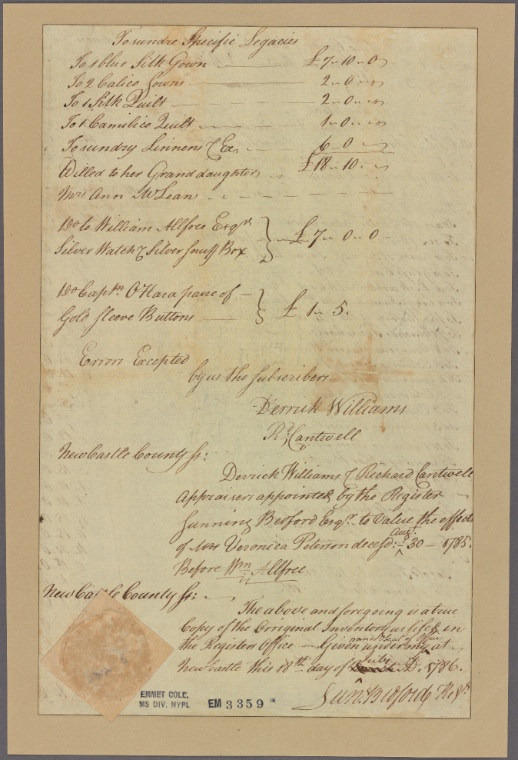 To sundre Specific Legacies
To 1 blue Silk Gown £7-10-0
To 2 Calico Gowns 2-0-
To 1 Silk Quilt 2-0-
To 1 Camblico Quilt 1-0-
To sundry Linnens & Ca 6-0-
Willed to her Grand daughter £18-10-
Mrs Ann McLean
Do to William Allfree Esqr
Silver Watch & Silver Snuff Box £7-0-0-
Do Captn O'Hara paire of
Gold Sleeve Buttons £1-5.
Errors Excepted
by us the Subscribers
Derrick Williams
Rd Cantwell
NewCastle County Ss:
Derrick Williams & Richard Cantwell
Appraisers appointed by the Register
Gunning Bedford Esqr. to Value the effects
of Mrs Veronica Peterson decesd. Augt. 30 - 1785.
Before Wm Allfree
New Castle County Ss:
The above and foregoing is a true
Copy of the Original Inventory as filed in
the Register Office - Given under my hand & seal of Office at
New Castle this 18th day of July A.D. 1786.
Gunn. Bedford Regr
EMMET COLL.
MS DIV. NYPL
EM 3359